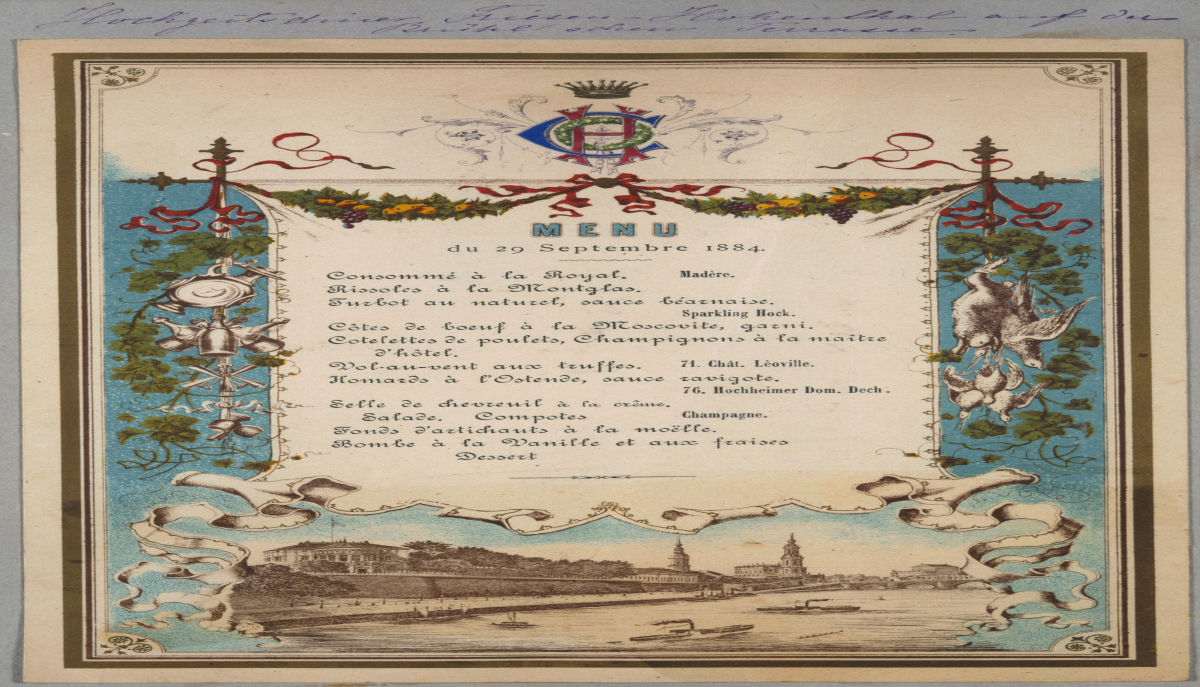 Hochzeitsdiner Friesen-Hohenthal auf der
Brühl'schen Terrasse.
CH
MENU
du 29 Septembre 1884.
Consommé à la Royal. Madère.
Rissoles à la Montglas.
Turbot au naturel, sauce béarnaise.
Sparkling Hock.
Côtes de boeuf à la Moscovite, garni.
Cotelettes de poulets, Champignons à la maître
d'hôtel.
Vol-au-vent aux truffes. 71. Chât. Lèoville.
Homards à l'Ostende, sauce ravigote.
76. Hochheimer Dom. Dech.
Selle de chevreuil à la crême.
Salade. Compotes Champagne.
Fonds d'artichauts à la moëlle.
Bombe à la Vanille et aux fraises
Dessert